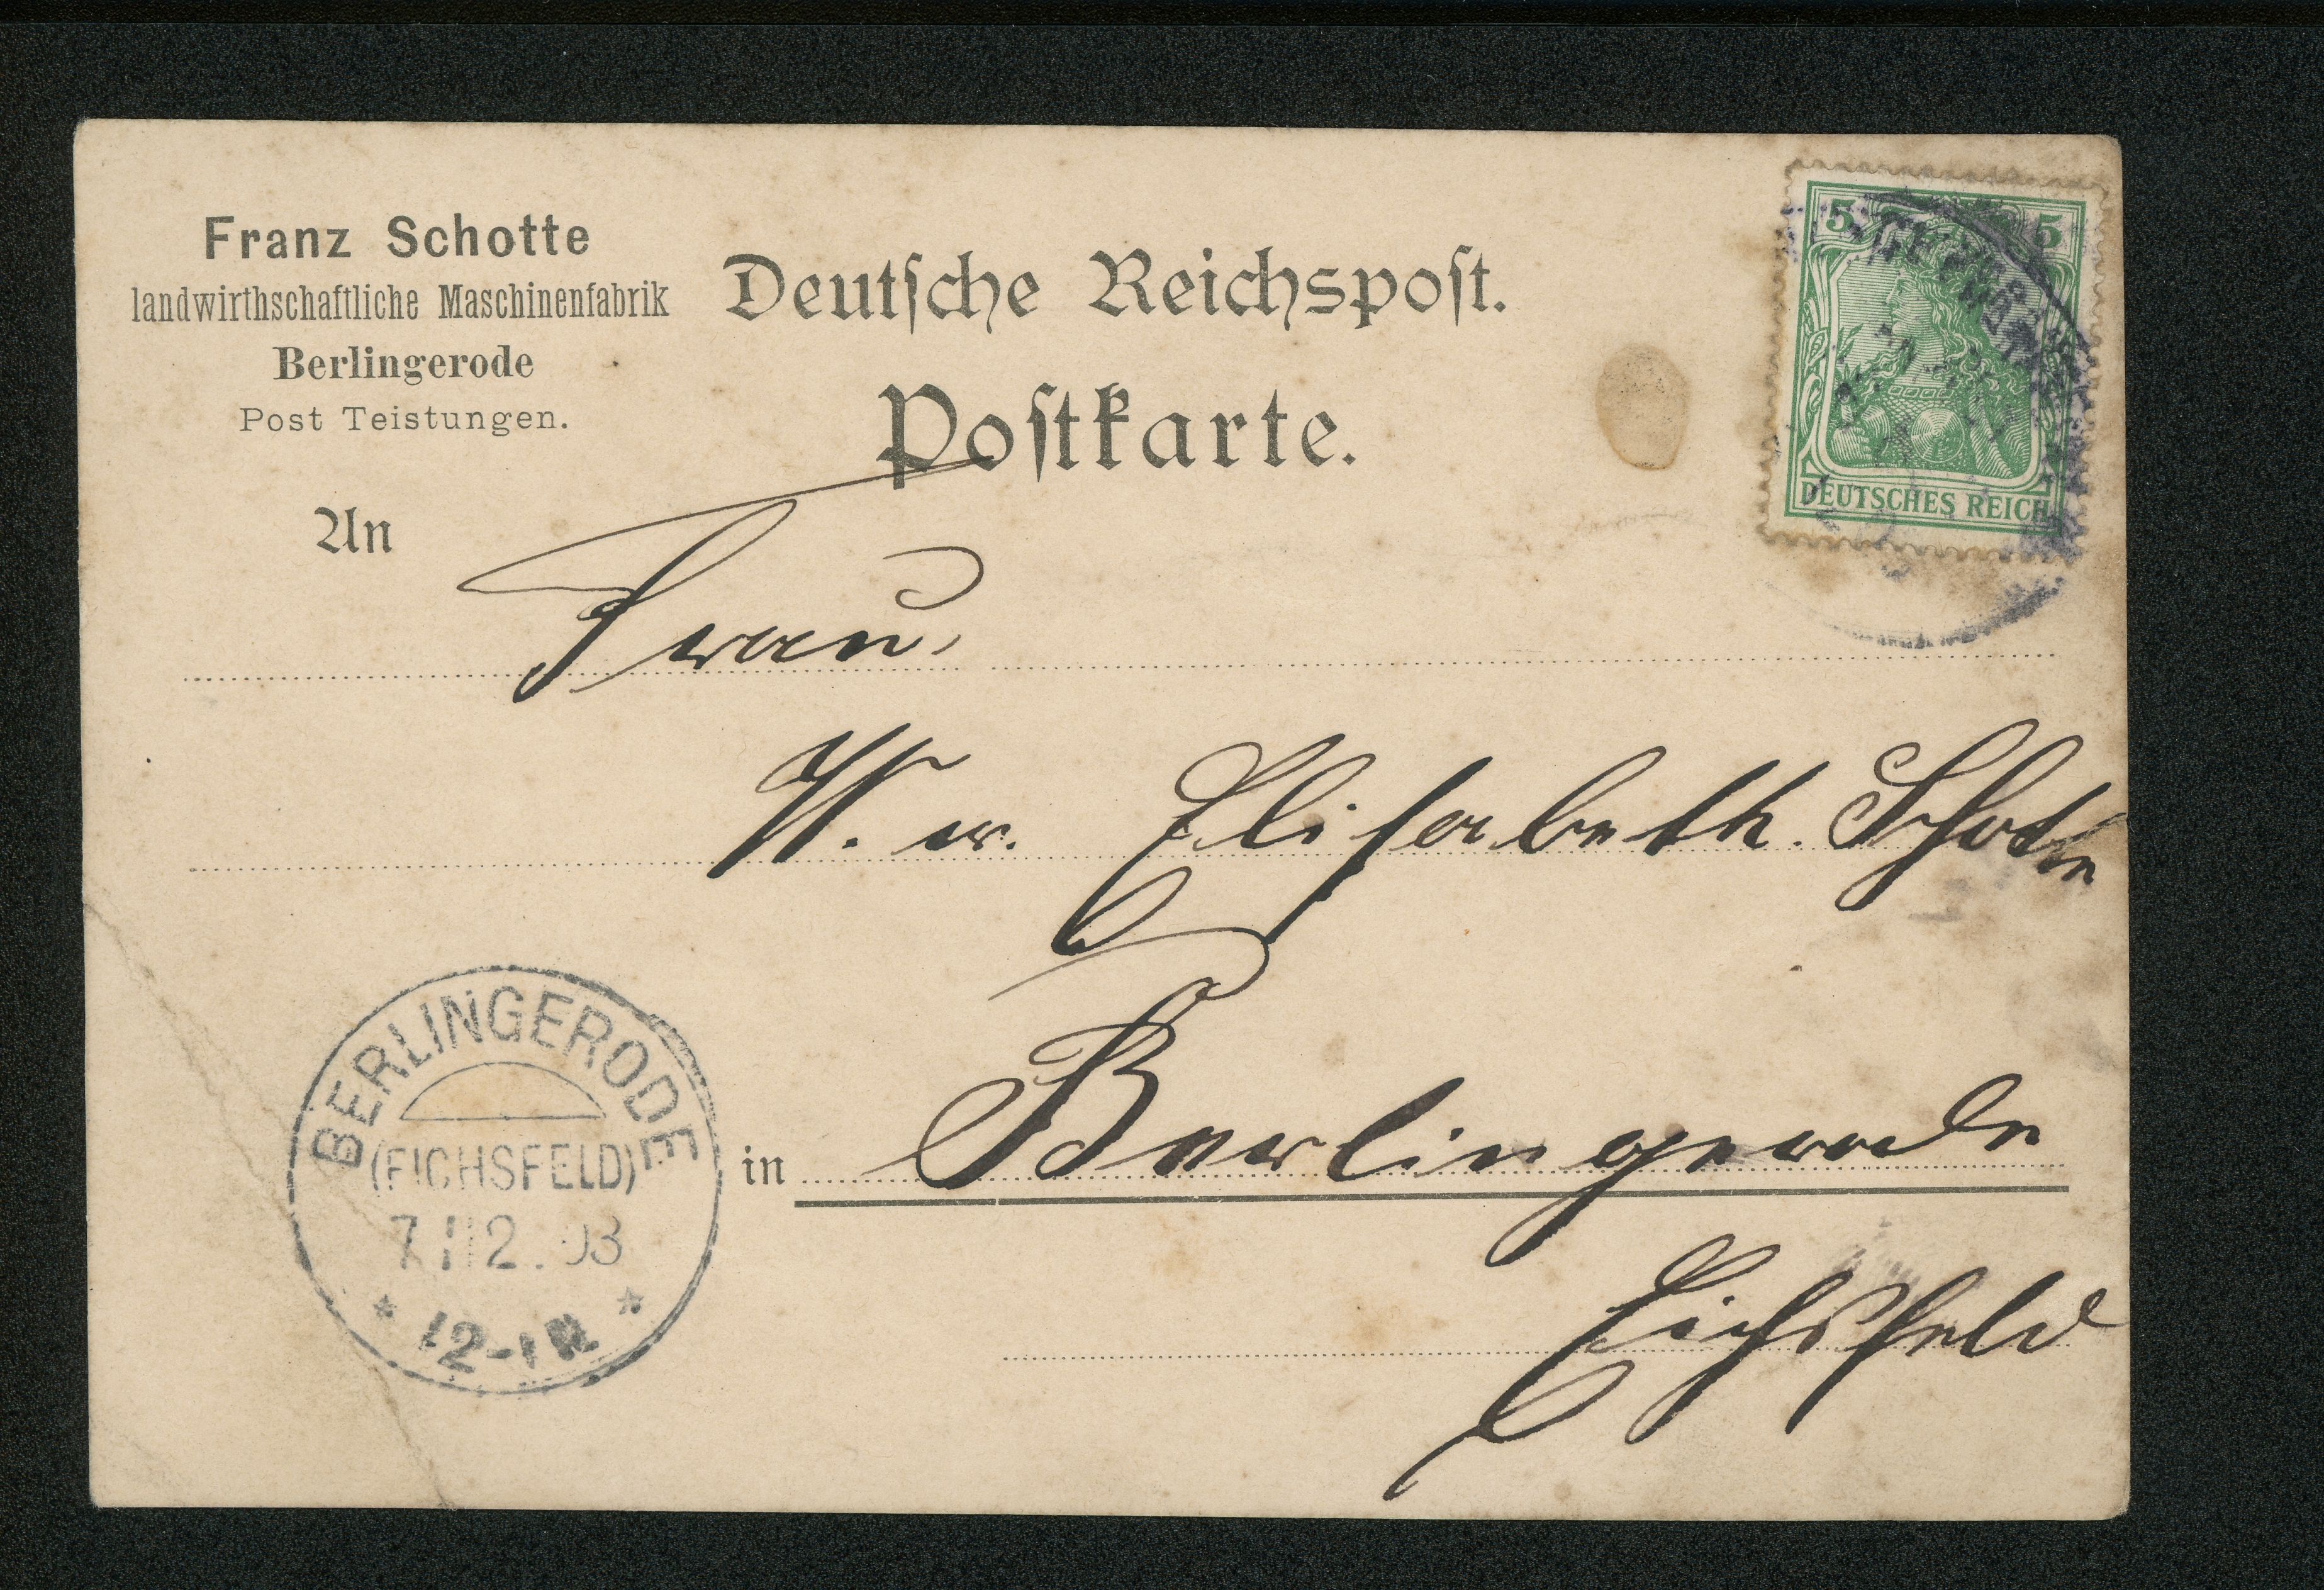 Franz Schotte
landwirthschaftliche Maschinenfabrik
Berlingerode
Post Teistungen.
Deutsche Reichspost.
Postkarte.
5 5
DEUTSCHES REICH
An
Frau
W. w. Elisabeth Schotte
in Berlingerode
Eichsfeld
BERLINGERODE
(EICHSFELD)
7.12.03
* 12-1N *